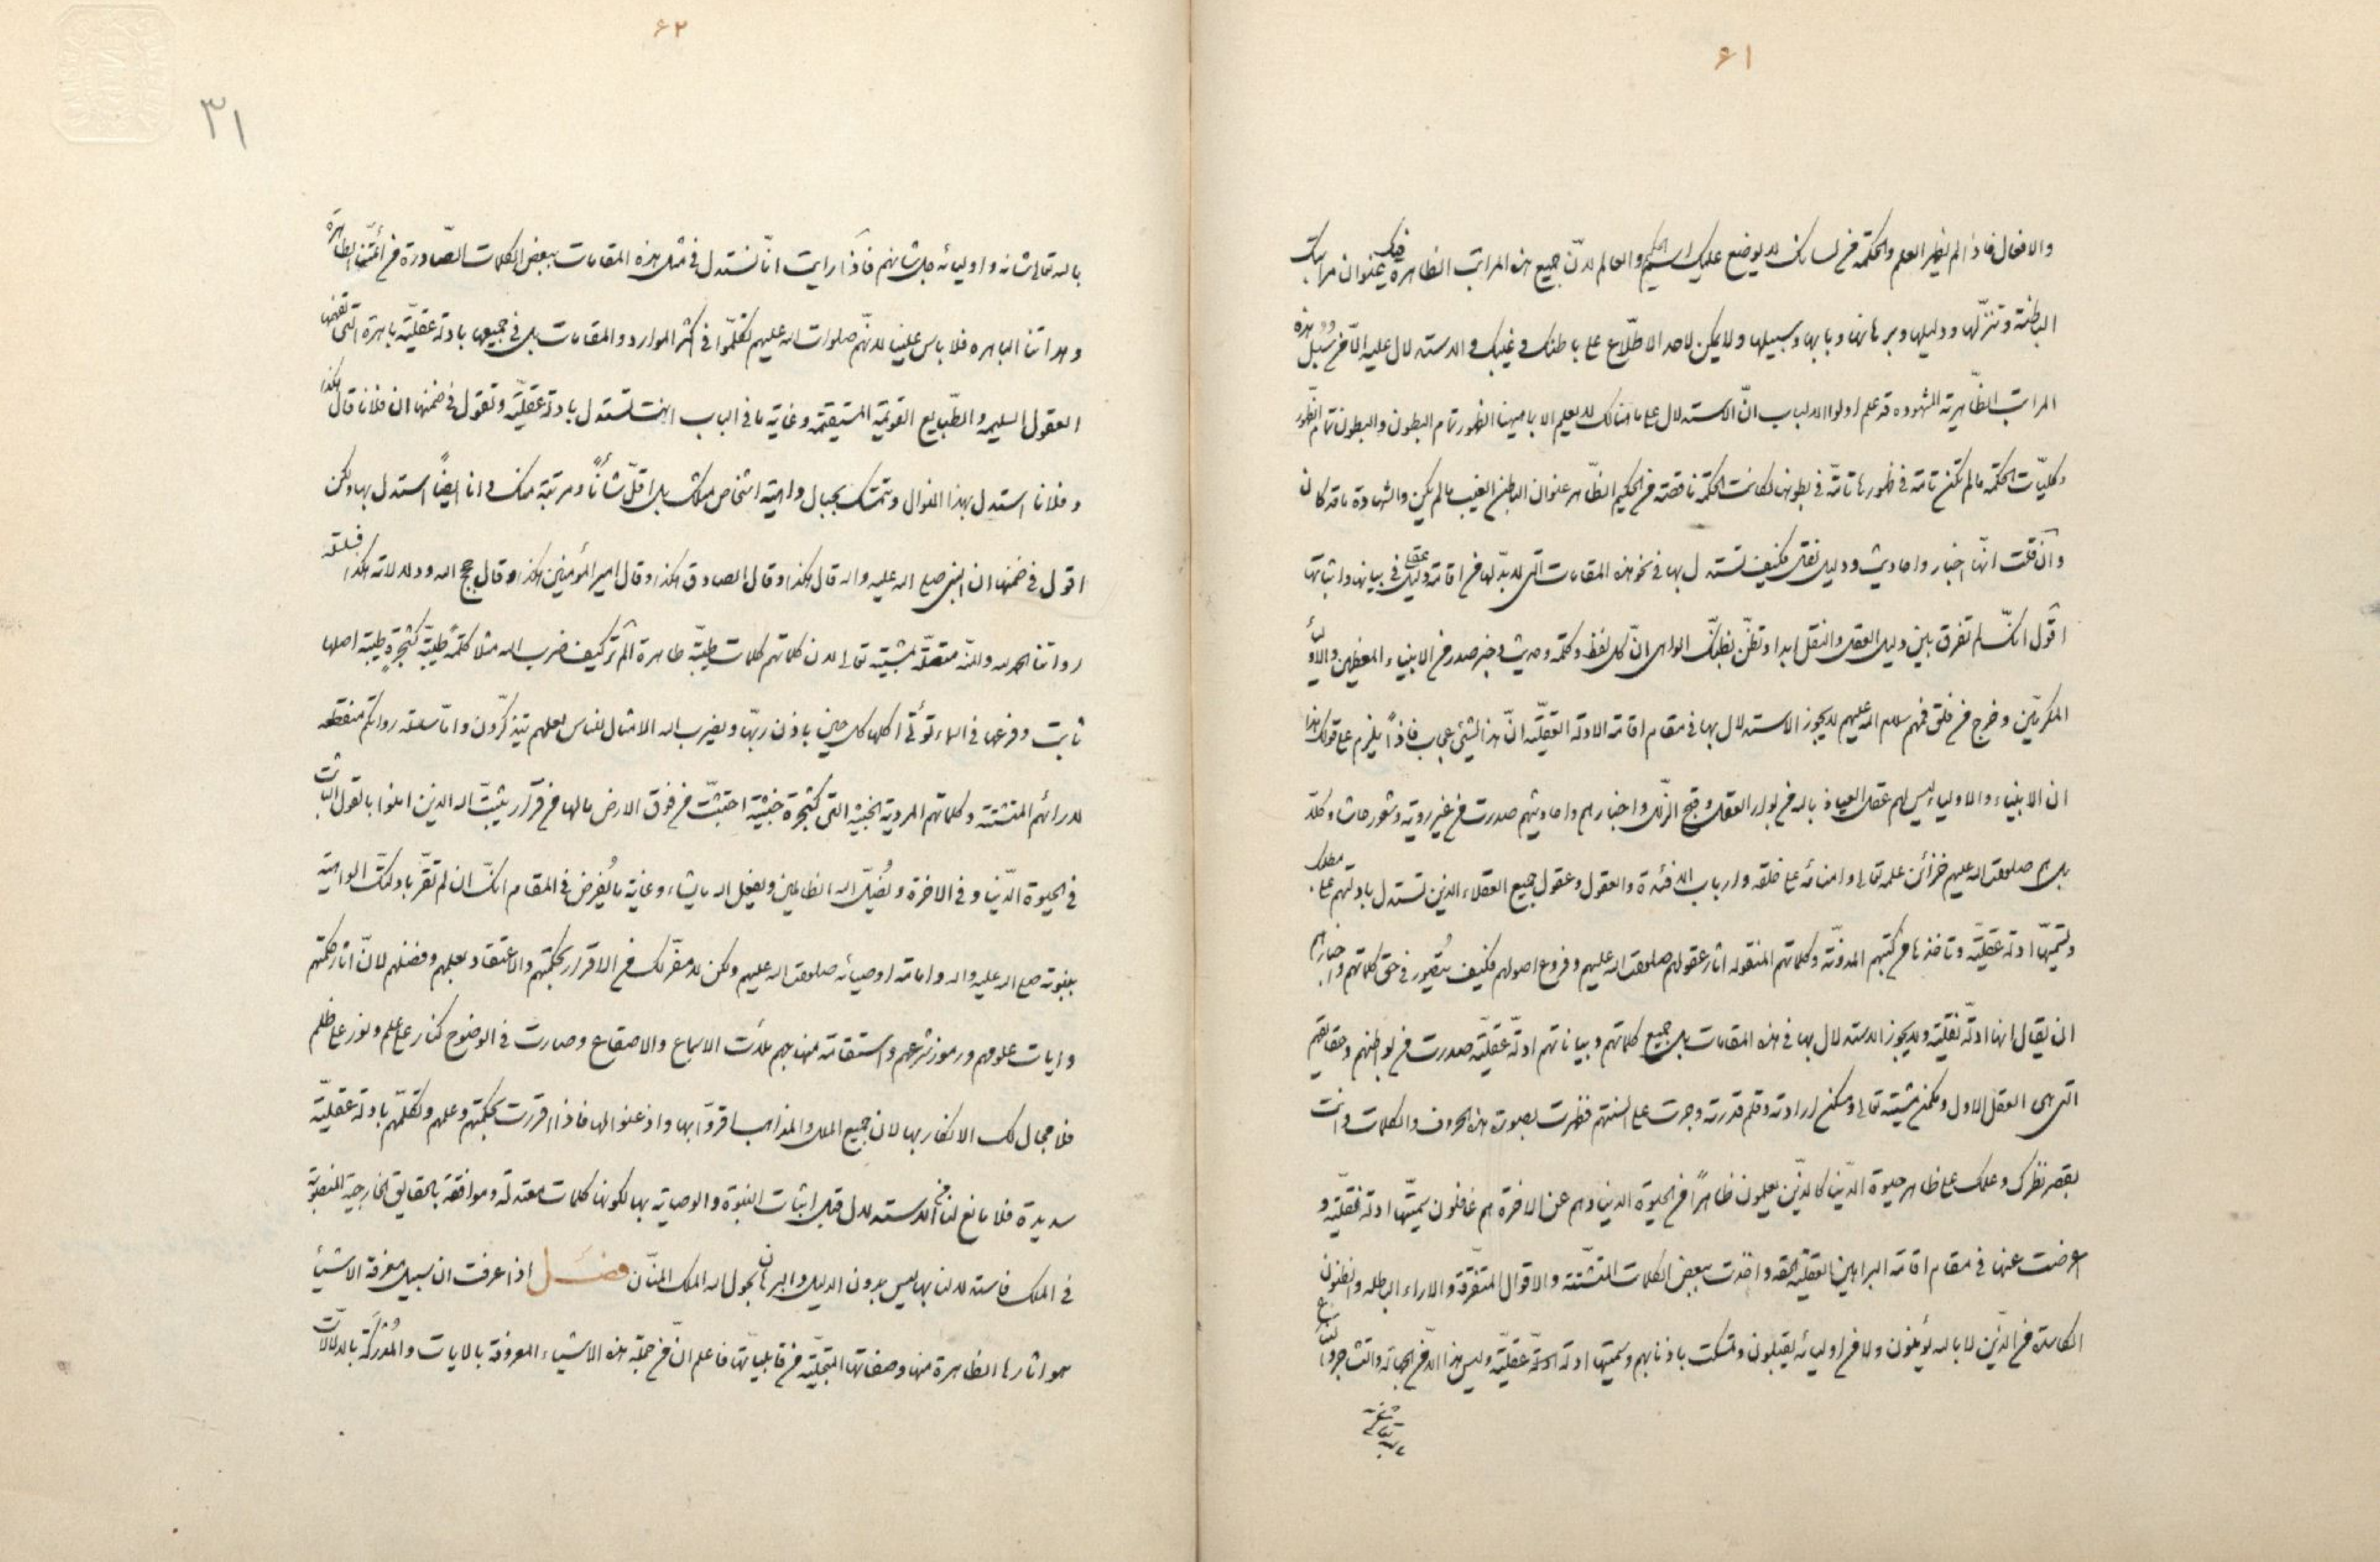 ۶۱
والافعال فاذا لم يظهر العلم والحكمة من لسانك لا يوضع عليك اسم الحكيم والعالم لانّ جميع هذه المراتب الظاهرة فيك عنوان مراتبك
الباطنة وتنزّلها ودليلها وبرهانها وبابها وسبيلها ولا يمكن لاحد الاطّلاع على باطنك وغيبك والاستدلال عليه الّا من سُبُل هذه
المراتب الظّاهرية المشهوده قد علم اولوا الالباب انّ الاستدلال على ما هنالك لا يعلم الا بما هيهنا الظهور تمام البطون والبطون تمام الظّهور
وكليّات الحكمة ما لم تكن تامّة في ظهورها تامّة في بطونها لكانت الحكمة ناقصة من الحكيم الظّاهر عنوان الباطن الغيب ما لم يكن والشهادة ما قد كان
وان قلت انّها اخبار واحاديث ودليل نقلى فكيف تستدل بها في نحو هذه المقامات التى لا بدّ لها من اقامة دليل عقلى في بيانها واثباتها
اقول انّك لم تفرق بين دليل العقل والنقل ابدا وتظنّ بظنّك الواهى انّ كل لفظ وكلمة وحديث وخبر صدر من الانبياء المعظمين والاولياء
المكرمين وخرج من خلق فهم سلام الله عليهم لا يجوز الاستدلال بها في مقام اقامة الادلة العقليّه انّ هذا لشيئ عجاب فاذاً يلزم على قولك هذا
ان الانبياء والاولياء ليس لهم عقل العياذ بالله من بوار العقل وقبح الزلل واخبارهم واحاديثهم صدرت من غير روية وشعور حاشا وكلّا
بل هم صلوات الله عليهم خزائن علمه تعالى وامنائه على خلقه وارباب الافئدة والعقول وعقول جميع العقلاء الذين تستدل بادلتهم على مطلبك
وتسمّيها ادلة عقليّة وتاخذها من كتبهم المدوّنة وكلماتهم المنقوله اثار عقولهم صلوات الله عليهم وفروع اصولهم فكيف يتصور في حق كلماتهم واخبارهم
ان يقال انها ادلّة نقليّة ولا يجوز الاستدلال بها في هذه المقامات بل جميع كلماتهم وبياناتهم ادلّة عقليّة صدرت من بواطنهم وحقايقهم
التى هى العقل الاول ومكمن مشيته تعالى ومسكن ارادته وقلم قدرته وجرت على السنتهم فظهرت بصورة هذه الحروف والكلمات وانت
بقصر نظرك وعلمك على ظاهر حيوة الدّنيا كالذين يعلمون ظاهرًا من الحيوة الدنيا وهم عن الاخرة هم غافلون سمّيتها ادلة نقليّة و
اعرضت عنها في مقام اقامة البراهين العقليّة الحقه واخذت ببعض الكلمات المتشتّته والاقوال المتفرّقة والاراء الباطله والظنون
الكاسدة من الذّين لا بالله يؤمنون ولا من اوليائه يقبلون وتمسكت باذنابهم وسمّيتها ادلة عقليّة وليس هذا الّا من الجهالة والتشاجر
۶۲
۳۱
بالله تعالى شانه واوليائه جل شانهم فاذا رايت انّا نستدل في مثل هذه المقامات ببعض الكلمات الصّادرة من ائمّتنا الطاهرة
وهداتنا الباهره فلا باس علينا لانّهم صلوات الله عليهم تكلّموا في اكثر الموارد والمقامات بل في جميعها بادلة عقليّة باهرة التى تفهمها
العقول السليمه والطّبايع القويمة المستقيمة وغاية ما في الباب انت تستدل بادلة عقليّة وتقول في ضمنها ان فلانا قال هكذا
وفلانا استدل بهذا المنوال وتتمسّك بحبال واهية اشخاص مثلك بل اقلّ شأناً ومرتبة منك وانا ايضاً استدل بها ولكن
اقول في ضمنها ان النبى صلى الله عليه واله قال هكذا وقال الصادق هكذا وقال امير المؤمنين هكذا وقال حجج الله ودلالاته هكذا فسلسلة
رواتنا الحمد لله والمنّة متصلة بمشيته تعالى لان كلماتهم كلمات طيبّة طاهرة الم تر كيف ضرب الله مثلا كلمةً طيبّة كشجرةٍ طيبة اصلها
ثابت وفرعها في السماء تؤتى اكلها كل حين باذن ربّها ويضرب الله الامثال للناس لعلهم يتذكرّون وامّا سلسله رواتكم منقطعه
لارائهم المتشتتة وكلماتهم المردية الخبيثة التى كشجرة خبيثة اجتثّت من فوق الارض مالها من قرار يثبّت الله الذين امنوا بالقول الثّابت
في الحيوة الدّنيا وفي الاخرة ويُضلّ الله الظالمين ويفعل الله ما يشاء وغاية ما يُفرض في المقام انّك ان لم تقرّ بادلتك الواهية
بنبوته صلى الله عليه واله وامامة اوصيائه صلوات الله عليهم ولكن لا مفرّ لك من الاقرار بحكمتهم والاعتقاد بعلمهم وفضلهم لانّ اثار حكمتهم
وايات علومهم ورموز شرعهم واستقامة منهاجهم ملأت الاسماع والاصقاع وصارت في الوضوح كنار على علم ونور على ظلم
فلا مجال لك الانكار بها لان جميع الملل والمذاهب اقرّوا بها واذعنوا لها فاذا اقررت بحكمتهم وعلمهم وتكلّمهم بادلة عقليّة
سديدة فلا مانع لنا من الاستدلال قبل اثبات النبوة والوصاية بها لكونها كلمات معتدلة وموافقة بالحقايق الخارجيّة المنصوبة
في الملك فاستدلالنا بها ليس بدون الدليل والبرهان بحول الله الملك المنّان فصل اذا عرفت ان سبيل معرفة الاشياء
هو اثارها الظاهرة منها وصفاتها المتجلّية من قابليّاتها فاعلم انّ من جملة هذه الاشياء المعروفة بالايات والمُدْرَكَة بالدلالات